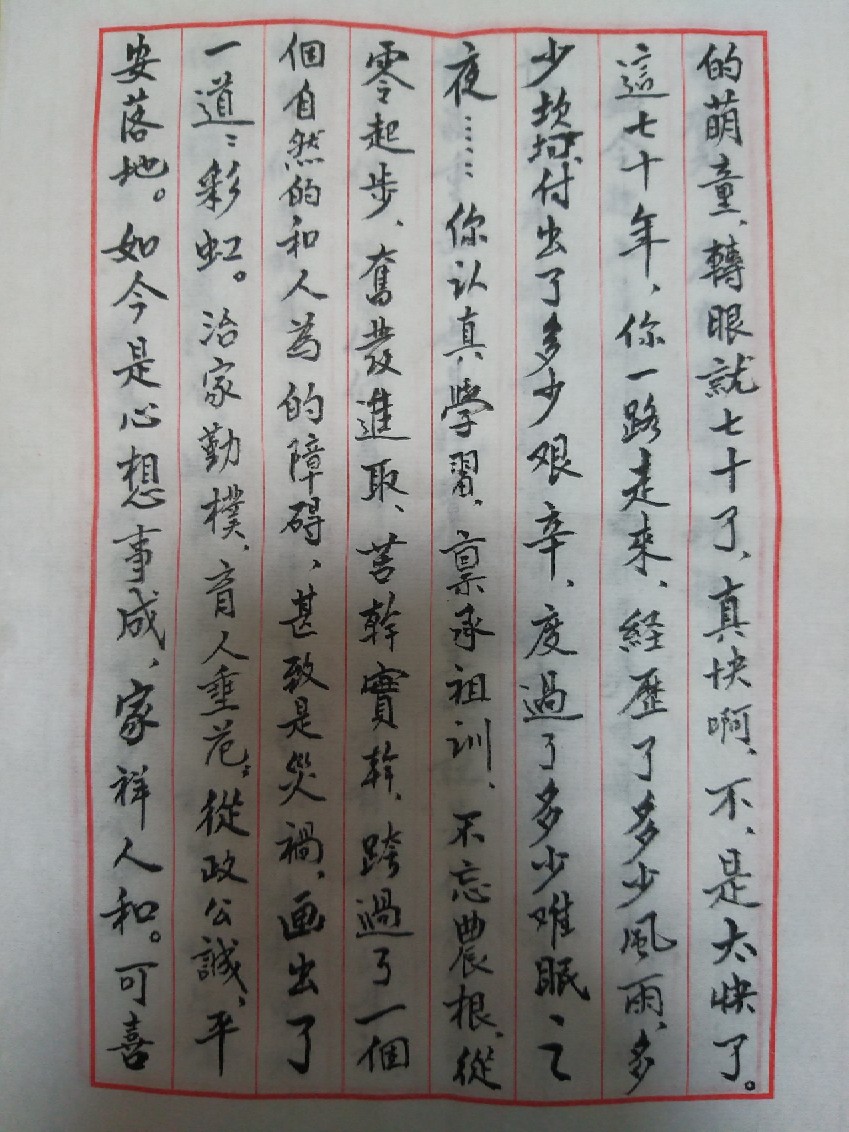 的萌童、轉眼就七十了、真快啊、不、是太快了。
這七十年、你一路走来、経歷了多少風雨、多
少坎坷、付出了多少艰辛、度過了多少难眠之
夜……你认真學習、禀承祖训、不忘農根、從
零起步、奮发進取、苦幹實幹、跨過了一個
個自然的和人為的障碍、甚致是災禍、画出了
一道道彩虹。治家勤樸、育人垂范、從政公誠、平
安落地。如今是心想事成、家祥人和。可喜